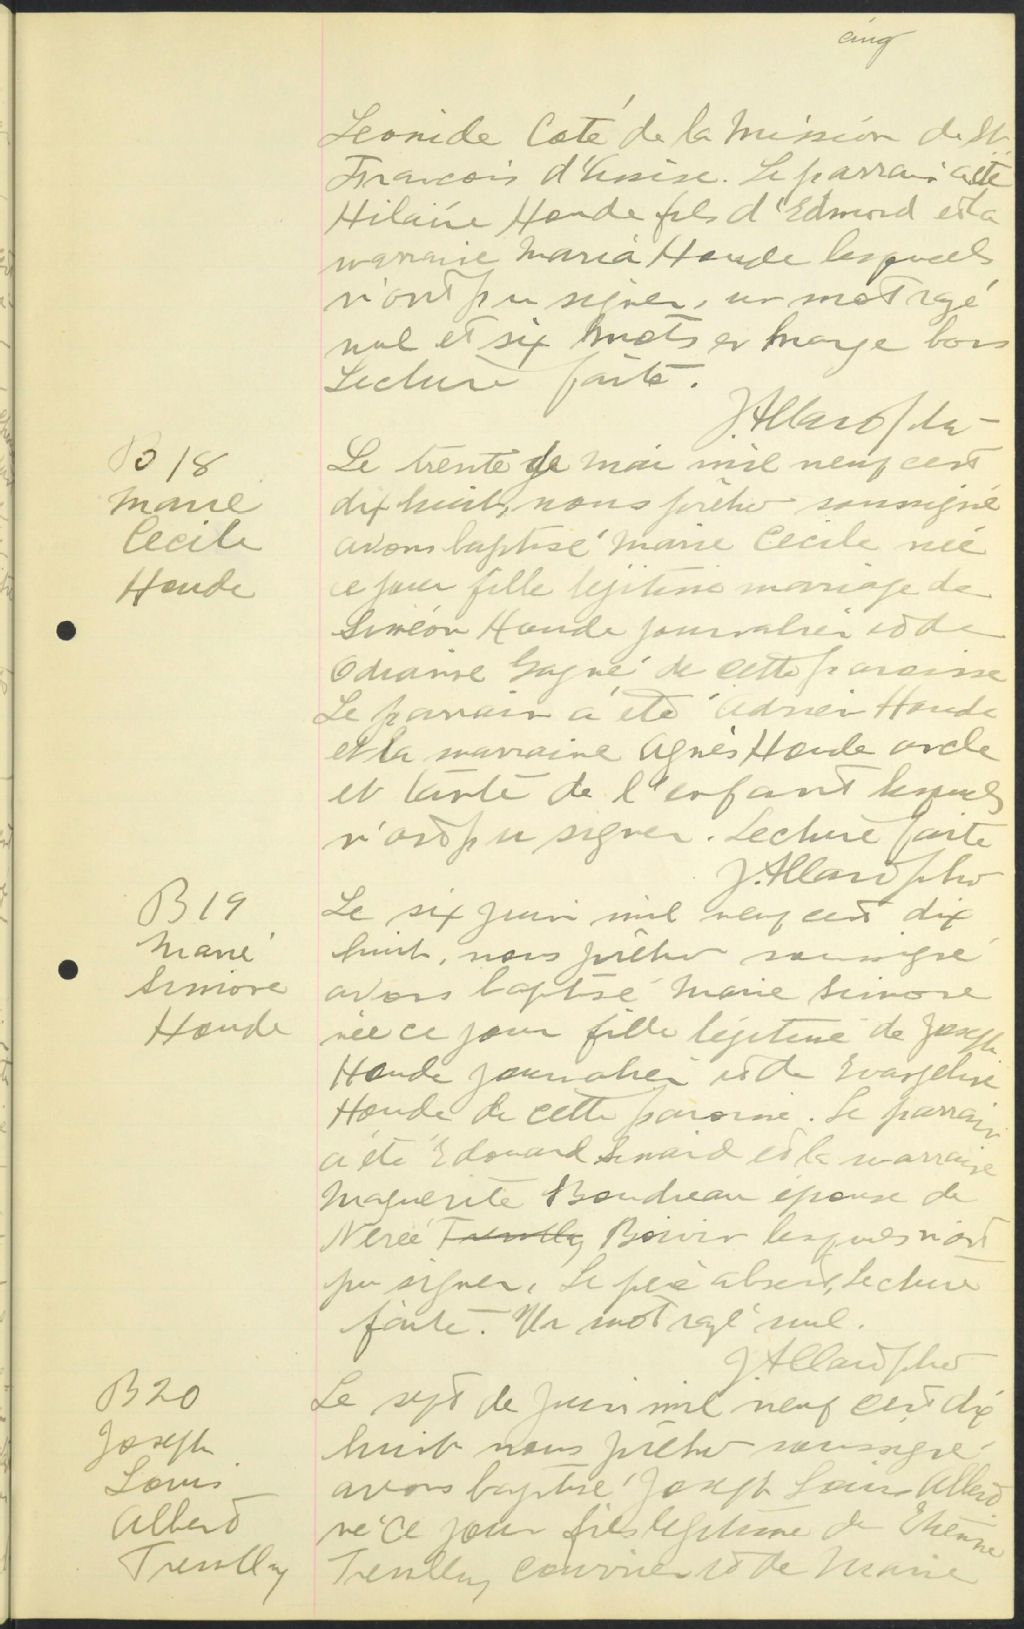 cinq
Leonide Coté de la Mission de St
Francois d'Assise. Le parrain a été
Hilaire Houde fils d'Edmond et la
marraine Maria Houde lesquels
n'ont pu signer, un mot rayé
nul et six mots en marge bons
Lecture faite.
J. Allard ptre
B 18
Marie
Cecile
Houde
Le trente de mai mil neuf cent
dix huit, nous prêtre soussigné
avons baptisé Marie Cecile née
ce jour fille légitime mariage de
Siméon Houde journalier et de
Gagné de cette paroisse
Le parrain a été Adrien Houde
et la marraine Agnès Houde oncle
et tante de l'enfant lesquels
n'ont pu signer. Lecture faite
J. Allard ptre
B 19
Marie
Simone
Houde
Le six juin mil neuf cent dix
huit, nous prêtre soussigné
avons baptisé Marie Simone
née ce jour fille légitime de Joseph
Houde journalier et de Evangeline
Houde de cette paroisse. Le parrain
a été Edouard Simard et la marraine
Maguerite Boudreau épouse de
Nereé Tremblay Boivin lesquels n'ont
pu signer, Le père absent, Lecture
faite. Un mot rayé nul.
J. Allard ptre
B 20
Joseph
Louis
Albert
Tremblay
Le sept de Juin mil neuf cent dix
huit nous prêtre soussigné
avons baptisé Joseph Louis Albert
né ce jour fils légitime de Etienne
Tremblay couvrier et de Marie